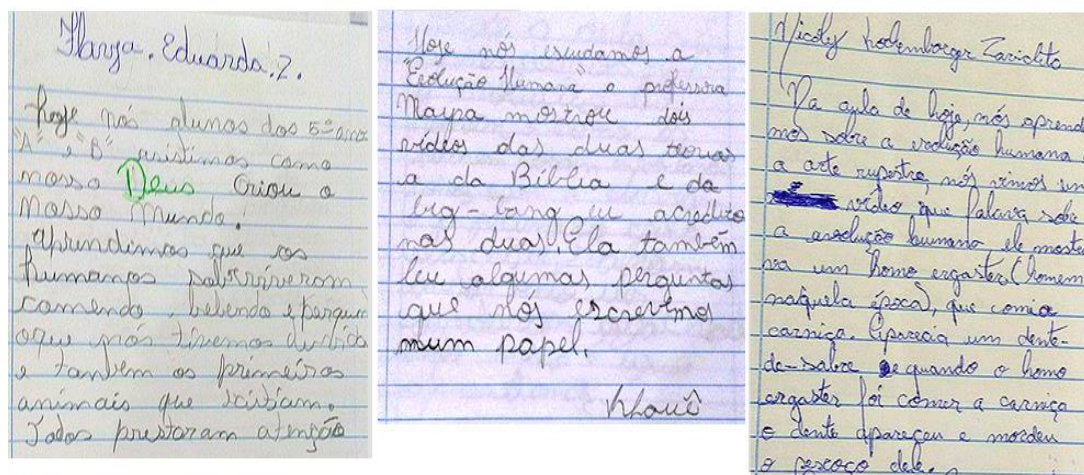 Eduarda. Z.
hoje nós alunos dos 5º anos
"A" e "B" assistimos como
nosso Deus criou o
nosso mundo.
aprendimos que os
humanos sobreviveram
comendo, bebendo e
oque nós tivemos
e tanbem os primeiros
animais que
Todos prestaram atenção
Hoje nós esudamos a
"Evolução Humana" a professora
Mayra mostrou dois
vídeos das duas teorias
a da Bíblia e da
big-bang eu acredito
nas duas. Ela também
leu algumas perguntas
que nós escrevemos
num papel.
Khauê
Nicoly
Na aula de hoje, nós aprende
mos sobre a evolução humana
a arte rupestre, nós vimos um
vídeo, que falava sobre
a evolução humana ele mostra
va um homo ergaster (homem
naquela época), que comia
carniça. Aparecia um dente-
de-sabre e quando o homo
ergaster foi comer a carniça
o dente apareceu e mordeu
o pescoço dele.